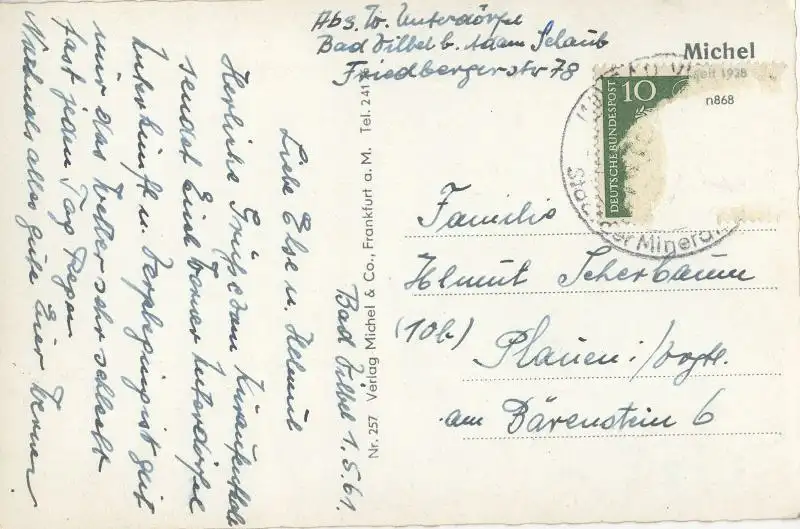 Abs. W. Unterdörfel
Bad Vilbel b. Adam Schaub
Friedbergerstr 78
Michel
seit 1928
n868
10
DEUTSCHE BUNDESPOST
Stadt der Mineral
Familie
Helmut Scherbaum
(10b)
Plauen i/Vogtl.
am Bärenstein 6
Nr. 257 Verlag Michel & Co., Frankfurt a. M. Tel. 241
Bad Vilbel 1.5.61.
Liebe Else u. Helmut
Herzliche Grüße vom Kuraufenthalt
sendet Euch Werner Unterdörfel
Unterkunft u. Verpflegung ist gut
nur das Wetter sehr schlecht
fast jeden Tag Regen
Nochmals alles gute Euer Werner